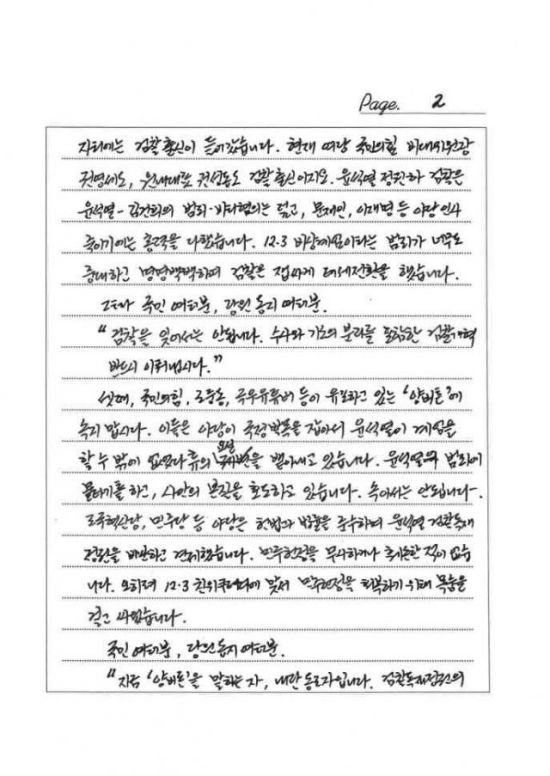 Page. 2
자리에는 검찰 출신이 들어갔습니다. 현재 여당 국민의힘 비대위원장
권영세도, 원내대표 권성동도 검찰 출신이지요. 윤석열 정권 하 검찰은
윤석열-김건희의 범죄·비리혐의는 덮고, 문재인, 이재명 등 야당 인사
죽이기에는 총력을 다했습니다. 12.3 비상계엄이라는 범죄가 너무도
중대하고 명명백백하며 검찰은 잽싸게 태세전환을 했습니다.
그러나 국민 여러분, 당원 동지 여러분.
“검찰을 잊어서는 안됩니다. 수사와 기소의 분리를 포함한 검찰개혁
반드시 이뤄냅시다.”
셋째, 국민의힘, 조중동, 극우유튜버 등이 유포하고 있는 ‘양비론’에
속지 맙시다. 이들은 야당이 국정 발목을 잡아서 윤석열이 계엄을
할 수 밖에 없었다 류의 요설을 뱉어내고 있습니다. 윤석열의 범죄에
물타기를 하고, 사안의 본질을 호도하고 있습니다. 속아서는 안됩니다.
조국혁신당, 민주당 등 야당은 헌법과 법률을 준수하며 윤석열 검찰독재
정권을 비판하고 견제했습니다. 민주헌정을 무시하거나 훼손한 적이 없습
니다. 오히려 12·3 친위쿠데타에 맞서 민주헌정을 회복하기 위해 목숨을
걸고 싸웠습니다.
국민 여러분, 당원 동지 여러분.
“지금 ‘양비론’을 말하는 자, 내란 동조자입니다. 검찰독재정권의